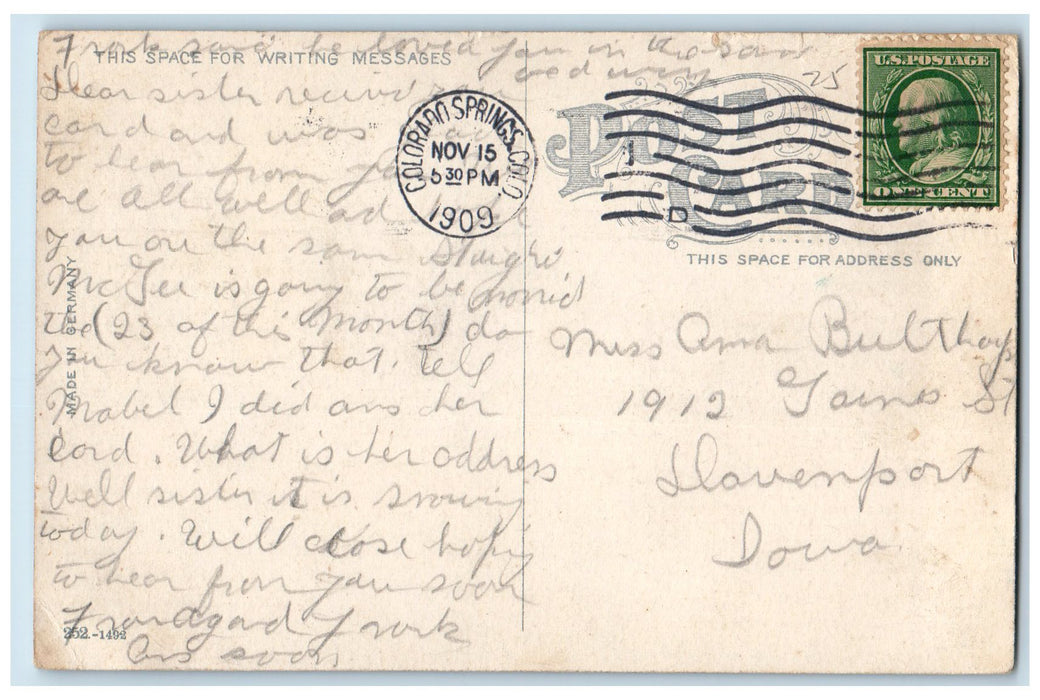 Frank said he loved you in the same
good way
THIS SPACE FOR WRITING MESSAGES
Dear sister recived your
card and was
to hear from you
are all well
you on the sam
McGee is going to be marrid
the (23 of this month) do
you know that. tell
Mabel I did ans her
Cord. What is her address
Well sister it is snowing
today. Will close hoping
to hear from you soon
Frank
Ans soon
MADE IN GERMANY
252.-1492
COLORADO SPRINGS, COLO.
NOV 15
5 30 PM
1909
1
D
25
POST CARD
U.S. POSTAGE
ONE CENT
THIS SPACE FOR ADDRESS ONLY
Miss Anna Bulthaup
1912 Gaines St
Davenport
Iowa